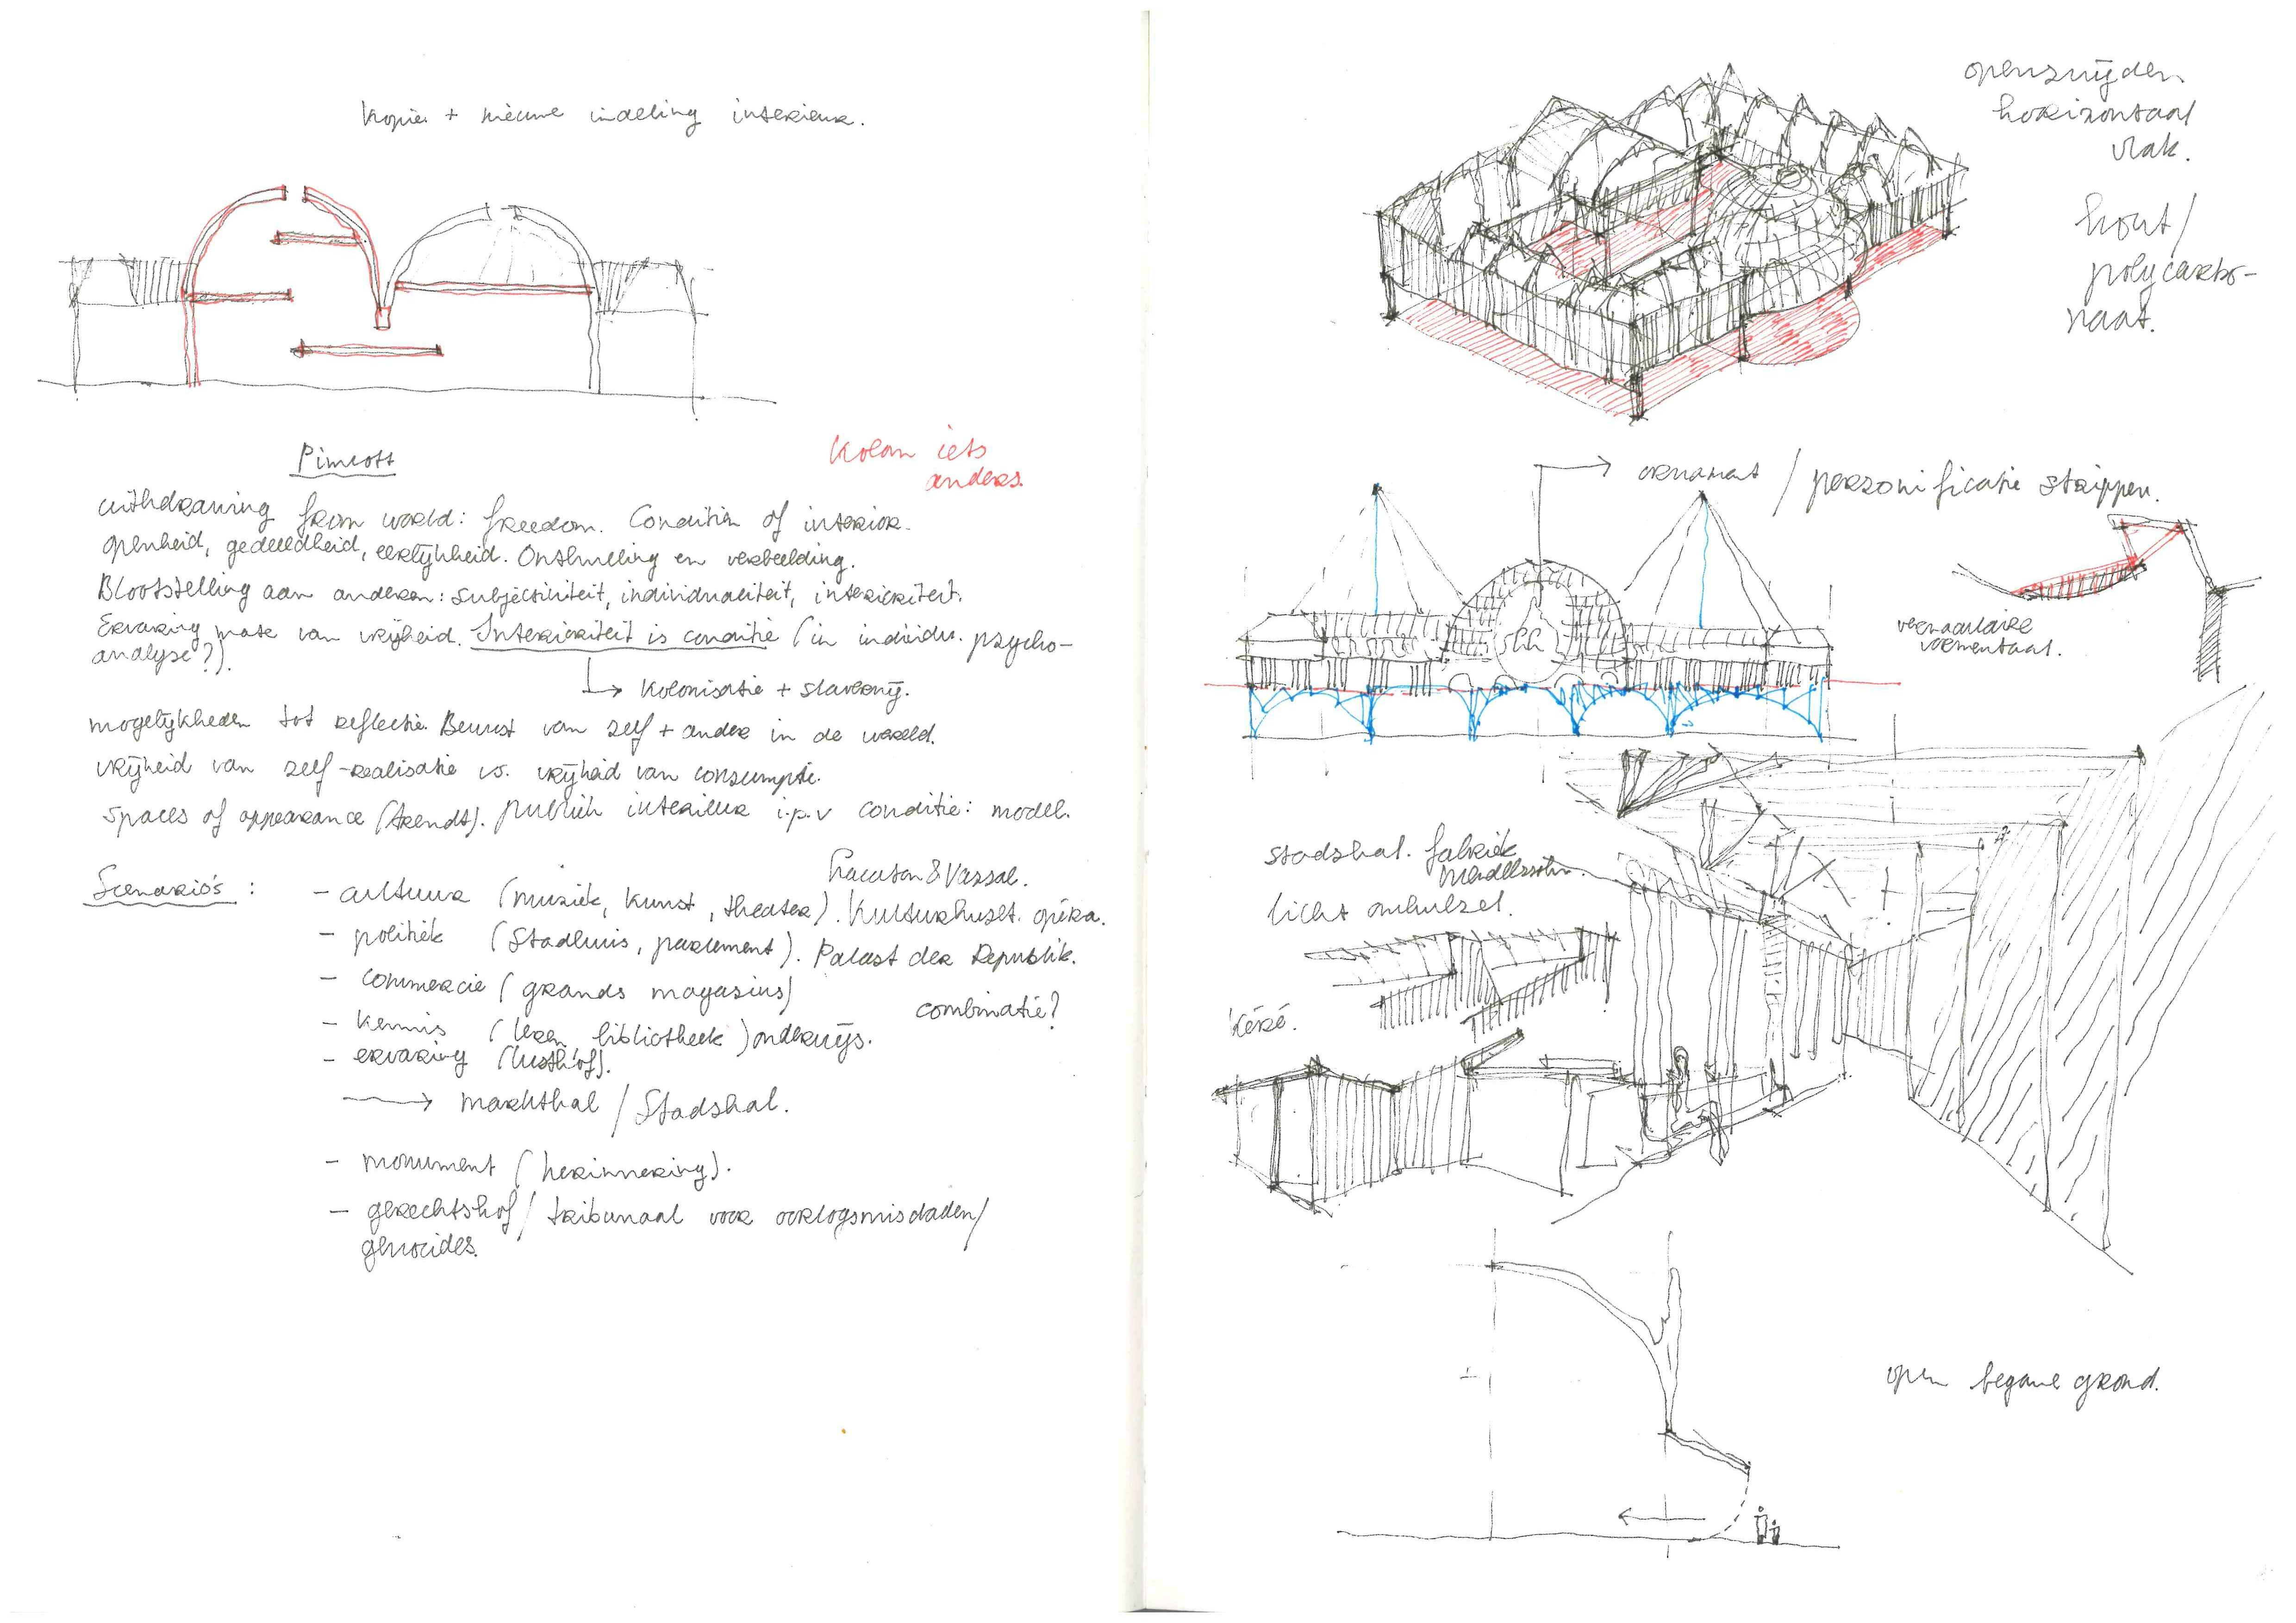 Kopie + nieuwe indeling interieur.
Kolom iets
anders.
Pimlott
withdrawing from world: freedom. Condition of interior.
openheid, gedeeldheid, eerlijkheid. Onthulling en verbeelding.
Blootstelling aan anderen: subjectiviteit, individualiteit, interioriteit.
Ervaring mate van vrijheid. Interioriteit is conditie (in individu. psycho-
analyse?).
↳ Kolonisatie + slavernij.
mogelijkheden tot reflectie. Bewust van zelf + ander in de wereld.
vrijheid van zelf-realisatie vs. vrijheid van consumptie.
Spaces of appearance (Arendt). publiek interieur i.p.v conditie: model.
Scenario's :
Lacaton & Vassal.
- cultuur (muziek, kunst, theater). Kulturhuset. opéra.
- politiek (Stadhuis, parlement). Palast der Republik.
- commercie (grands magasins)
combinatie?
- kennis (leren bibliotheek) onderwijs.
- ervaring (lusthof).
→ markthal / Stadshal.
- monument (herinnering).
- gerechtshof / tribunaal voor oorlogsmisdaden/
genocides.
opensnijden
horizontaal
vlak.
hout/
polycarbo-
naat.
→ ornament / personificatie strippen.
vernaculaire
vormentaal.
Stadshal. fabriek
Mendelssohn.
licht omhulsel.
Kéré.
open begane grond.